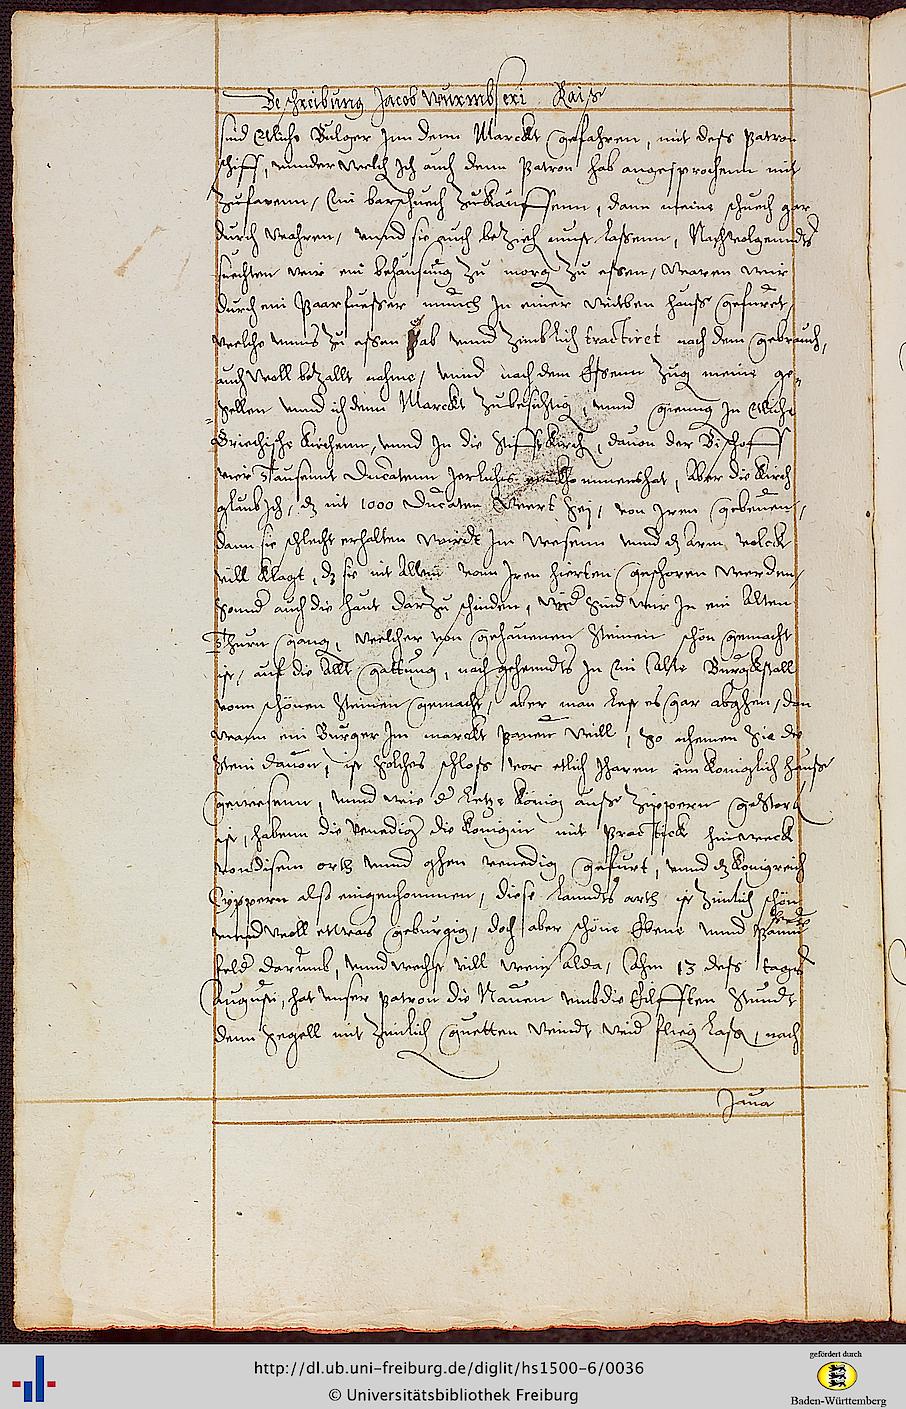 Beschreibung Jacob Wurmbseri Rais
sind Etliche Bulger Inn denn Marckt gefahren, mit dess Patron
schiff, wunder welch Ich auch denn Patron hab angesprochenn mit
Zufarenn, Ein barschuech Zukauffenn, dann meine schuech gar
durch wahren, vnnd sie auch lassenn, Nachvolgenndts
suechten wir ein behausung zu morg zu essen, waren wir
durch ein Paarfuesser münch In einer witben hauss gefüret,
welche vnns zu essen gab vnnd Zimblich tractiret nach dem gebrauch,
auch woll bezallt nahme, vnnd nach dem Essenn Zug meine ge-
sellen vnnd ich denn Marckt Zubesichtig, vnnd gienng In Etliche
Griechische Kirchenn, vnnd In die Stifftkirch, dauon der Bischoff
vier Tausennt Ducatenn Jerliches einkhommenshat, Aber die Kirch
glaub Ich, dz nit 1000 Ducaten Wert sej, von Iren gebeuen,
dann sie schlecht erhalten wirdt Im wesenn vnnd dz Arm volck
will klagt, dz sie nit Allein vonn Iren hierten geschoren werden,
Sonnd auch die haut darzu schinden, Wid sind wir In ein Alten
Thurn gang, welcher von gehauenen Steinen schön gemacht
ist, auf die Allt gattung, nach gehenndts In ein Alte Burgkstall
vonn schönen Steinen gemacht, aber man lest es gar abghen, dan
wann ein Burger Im marckt pauen will, so nhemen Sie die
Stein dauon, ist Solches schloss vor etlich Iharen ein Koniglich hauss
gewesenn, vnnd wie d letze König auss Zippern gestorb
ist, habenn die Venedig die Konigin mit Practick hinweeck
von disem orth vnnd ghen venedig gefurt, vnnd dz Konigreich
Cyppern also eingenhommen, diese Lanndts arth ist Zimlich schön
vnnd woll ettwas geburgig, doch aber schöne Ebene vnnd
feld darumb, vnnd wechst vill wein alda, Ahm 13 dess tags
Augusti, hat vnser Patron die Nauen vmb die Eilfften Stundt
denn Segell mit Zimlich guetten Windt wid flieg lass, nach
Java
http://dl.ub.uni-freiburg.de/diglit/hs1500-6/0036
© Universitätsbibliothek Freiburg
gefördert durch
Baden-Württemberg